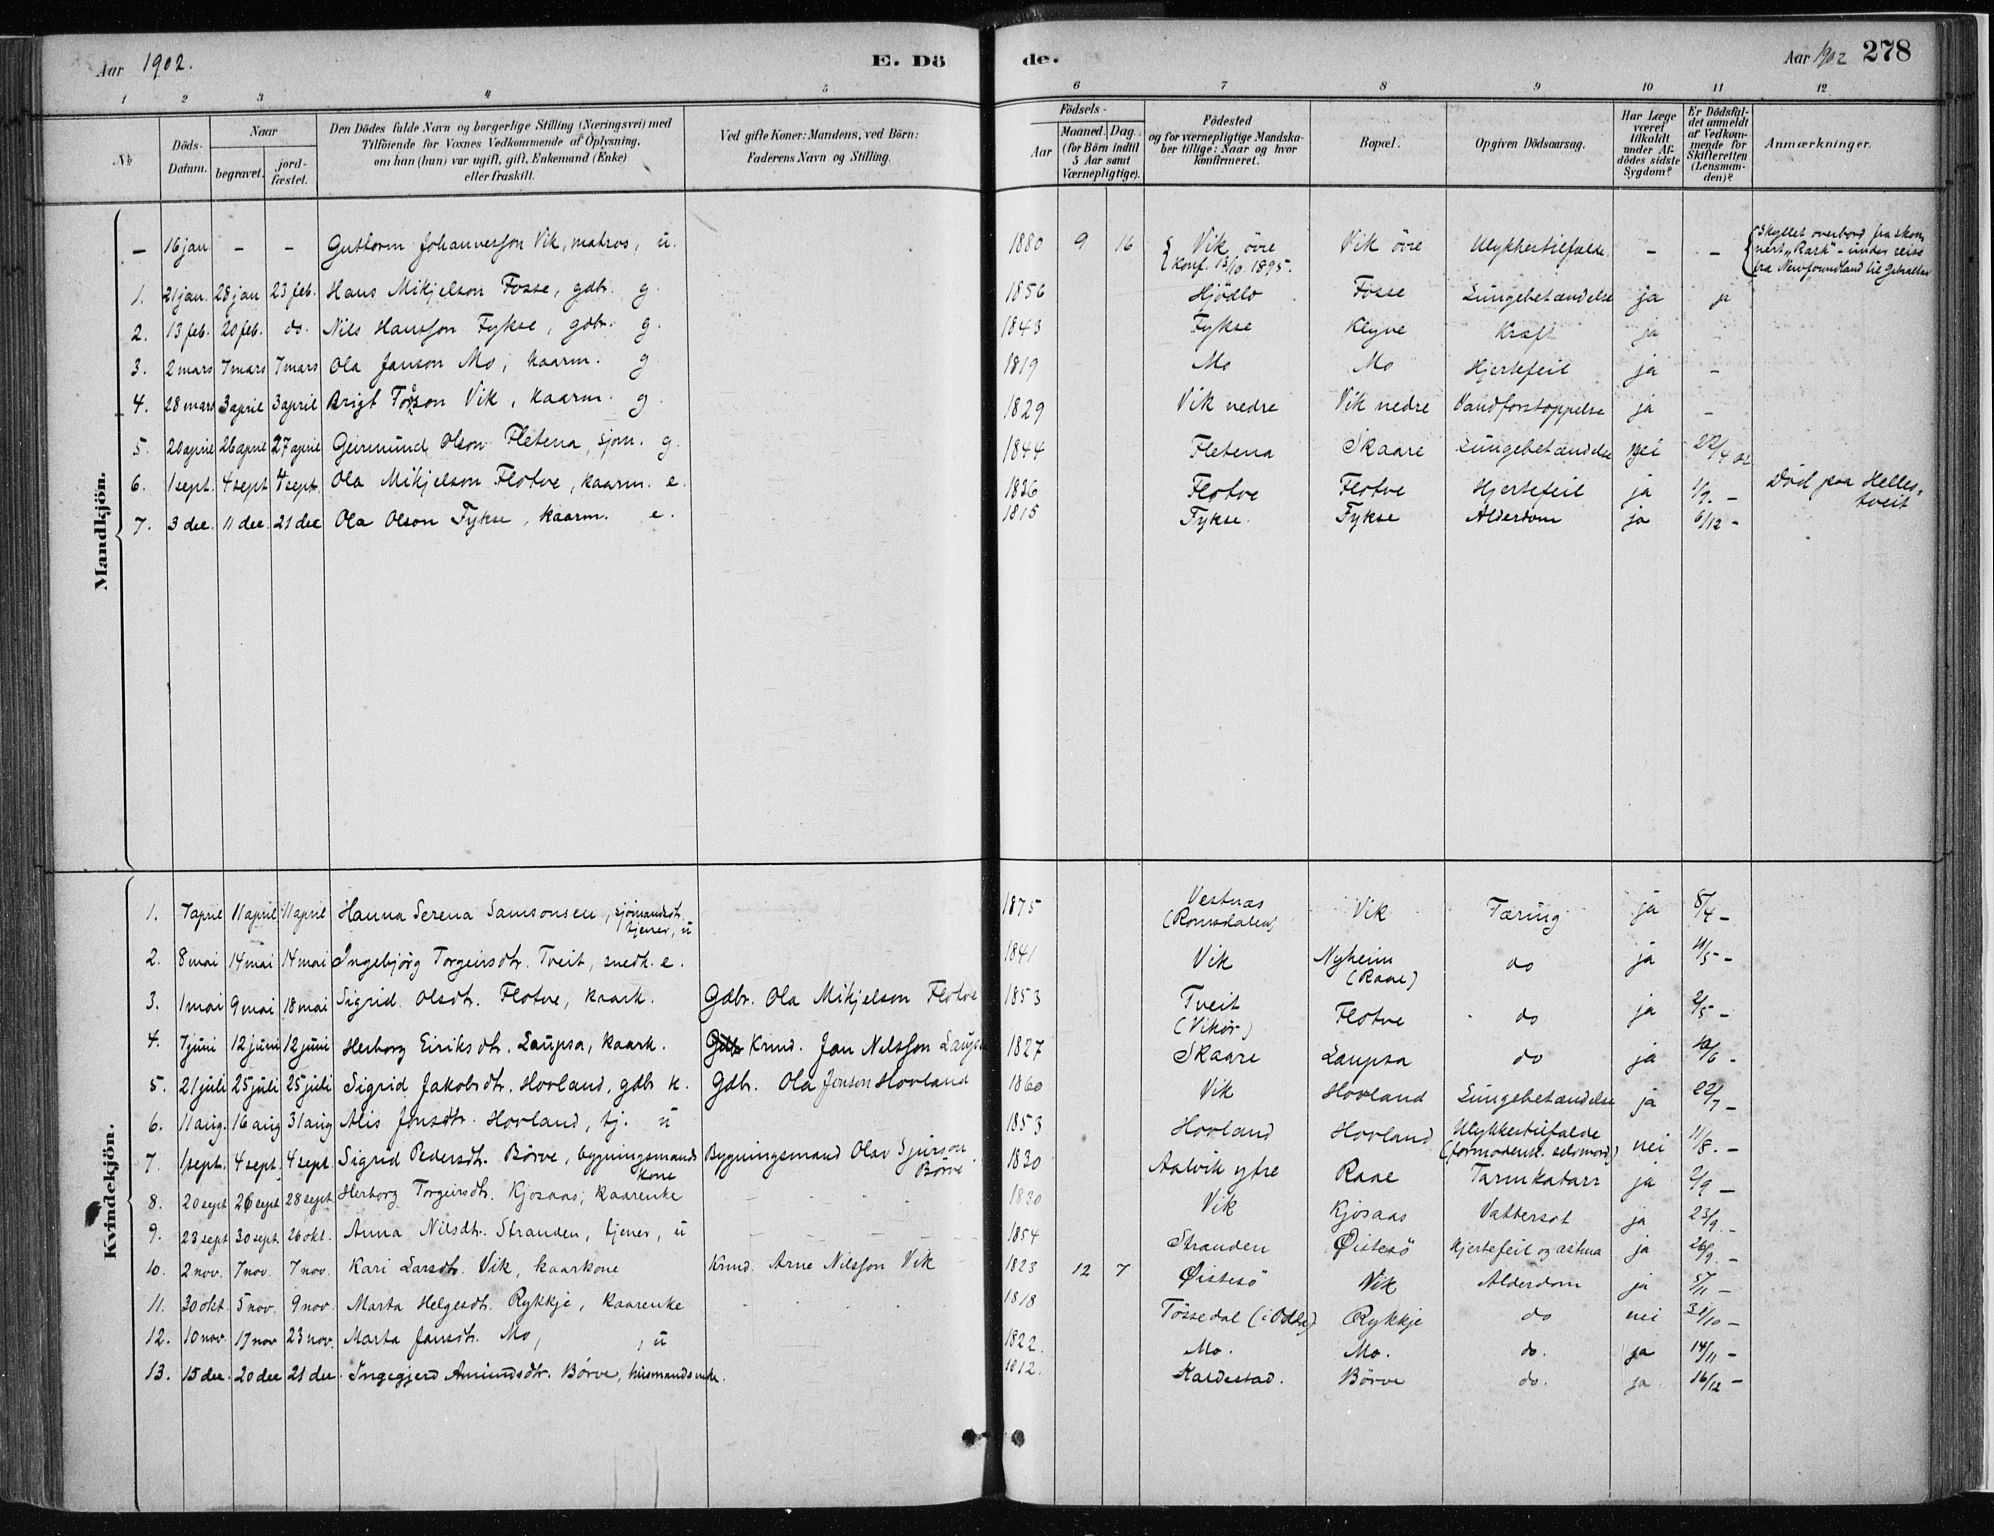 Aar 1902. E. Dö de. Aar 1902 278
1 2 3 4 5 6 7 8 9 10 11 12
No
Döds-Datum.
Naar
begravet.
jord-fæstet.
Den Dödes fulde Navn og borgerlige Stilling (Næringsvei) med
Tilföiende for Voxnes Vedkommende af Oplysning,
om han (hun) var ugift, gift, Enkemand (Enke)
eller fraskilt.
Ved gifte Koner: Mandens, ved Börn:
Faderens Navn og Stilling.
Födsels-
Aar
Maaned. Dag.
(for Börn indtil
5 Aar samt
Værnepligtige).
Födested
og for værnepligtige Mandska-
ber tillige: Naar og hvor
konfirmeret.
Bopæl.
Opgiven Dödsaarsag.
Har Læge
været
tilkaldt
under Af-
dödes sidste
Sygdom?
Er Dödsfal-
det anmeldt
af Vedkom-
mende for
Skifteretten
(Lensman-
den)?
Anmærkninger.
Mandkjön.
– 16 jan – – Guttorm Johannesson Vik, matros, u. 1880 9 16 Vik övre Konf. 13/10 1895. Vik övre Ulykkestilfælde. – – Skyllet overbord fra skon-
nert „Rask" – under reise
fra Newfoundland til Gibraltar
1. 21 jan. 28 jan 23 feb. Hans Mikjelson Fosse, gdbr. g. 1856 Hjödlo Fosse Lungebetændelse ja ja
2. 13 feb. 20 feb. do. Nils Hansson Fykse, gdbr. g. 1843 Fykse Klyve Kræft ja -
3. 2 mars 7 mars 7 mars Ola Janson Mo, kaarm. g 1819 Mo Mo Hjertefeil ja –
4. 28 mars 3 april 3 april Brigt Torson Vik, kaarm. g. 1829 Vik nedre Vik nedre Vandforstoppelse ja –
5. 20 april 26 april 27 april Geirmund Olson Fletena, sjom. g. 1844 Fletena Skaare Lungebetændelse nei 22/4 02
6. 1 sept. 4 sept 4 sept. Ola Mikjelson Flotve, kaarm. e. 1836 Flotve Flotve Hjertefeil ja 1/9. – Död paa Helles-
tveit
7. 3 dec. 11 dec. 21 dec Ola Olson Fykse, kaarm. e. 1815 Fykse. Fykse Alderdom ja 6/12 –
Kvindekjön.
1. 7 april 11 april 11 april Hanna Serena Samsonsen, sjömandsdt.
tjener, u 1875 Vestnæs
(Romsdalen) Vik Tæring ja 8/4 –
2. 8 mai 14 mai 14 mai Ingebjörg Torgeirsdtr. Tveit, snedk. e. 1841 Vik Nyheim
(Raae) do ja /5 –
3. 1 mai 9 mai 18 mai Sigrid Olsdt. Flotve, kaark. Gdbr. Ola Mikjelson Flotve 1853 Tveit
(Vikör) Flotve do ja 2/5 –
4. 7 juni 12 juni 12 juni Herborg Eiriksdtr. Laupsa, kaark. Krmd. Jan Nilsson Laupsa 1827 Skaare Laupsa do ja 10/6 –
5. 21 juli 25 juli 25 juli Sigrid Jakobsdtr. Hovland, gdbr k. Gdbr. Ola Jonson Hovland 1860 Vik Hovland Lungebetændelse ja 22/7 –
6. 11 aug. 16 aug 31 aug Alis Jonsdtr. Hovland, tj. u 1853 Hovland Hovland Ulykkestilfælde
(formodentl. selvmord) nei 11/8. –
7. 1 sept. 4 sept. 4 sept. Sigrid Pedersdt. Börve, bygningsmands
kone Bygningsmand Olav Sjurson
Börve 1830 Aalvik ytre Raae Tarmkatarr ja 2/9 –
8. 20 sept 26 sept 28 sept Herborg Torgeirsdtr. Kjosaas, kaarenke 1830 Vik Kjosaas Vattersot ja 23/9. –
9. 23 sept 30 sept. 26 okt. Anna Nilsdt. Stranden, tjener, u 1854 Stranden Øistesö Hjertefeil og astma ja 26/9. –
10. 2 nov. 7 nov. 7 nov. Kari Larsdtr. Vik, kaarkone Krmd. Arne Nilsson Vik 1823 12 7 Øistesö Vik Alderdom ja 5/11 –
11. 30 okt. 5 nov. 9 nov. Marta Helgesdt. Rykkje, kaarenke 1818 Tössedal (i Odda) Rykkje do nei 31/10 –
12. 10 nov. 17 nov 23 nov. Marta Jansdt. Mo, , u 1822. Mo. Mo. do. ja 14/11 –
13. 15 dec. 20 dec 21 dec. Ingegjerd Amundsdtr. Börve, husmandsenke. 1812. Kaldestad. Börve do. ja 16/12 –